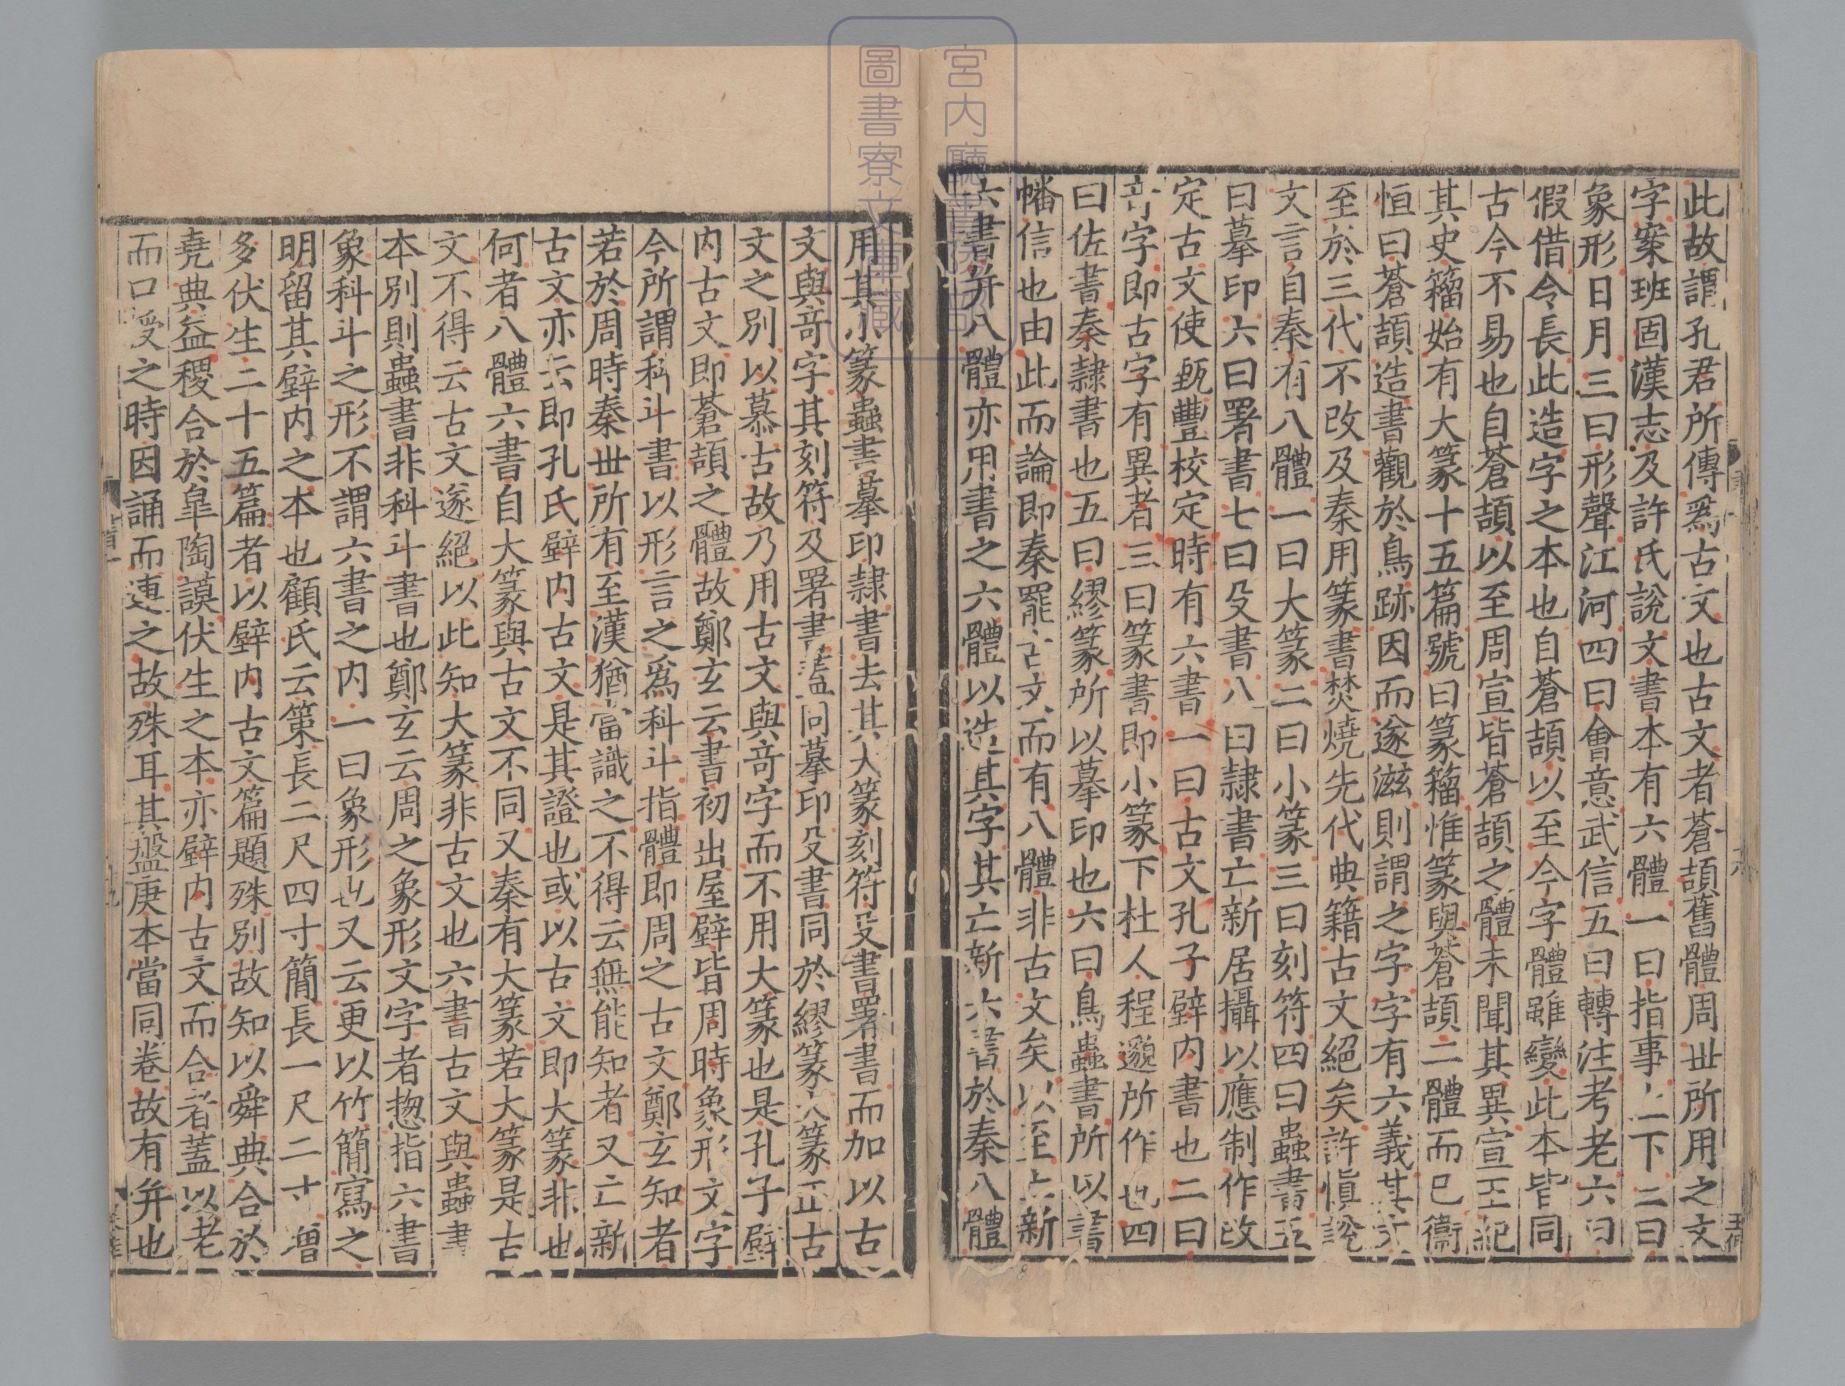 此故謂孔君所傳爲古文也古文者蒼頡舊體周丗所用之文
字案班固漢志及許氏說文書本有六體一曰指事上下二曰
象形日月三曰形聲江河四曰會意武信五曰轉注考老六曰
假借令長此造字之本也自蒼頡以至今字體雖變此本皆同
古今不易也自蒼頡以至周宣皆蒼頡之體未聞其異宣王紀
其史籀始有大篆十五篇號曰篆籀惟篆與蒼頡二體而已衞
恒曰蒼頡造書觀於鳥跡因而遂滋則謂之字字有六義其文
至於三代不改及秦用篆書焚燒先代典籍古文絕矣許愼說
文言自秦有八體一曰大篆二曰小篆三曰刻符四曰蟲書五
曰摹印六曰署書七曰殳書八曰隷書亡新居攝以應制作改
定古文使甄豐校定時有六書一曰古文孔子壁内書也二曰
竒字即古字有異者三曰篆書即小篆下杜人程邈所作也四
曰佐書秦隷書也五曰繆篆所以摹印也六曰鳥蟲書所以書
幡信也由此而論即秦罷古文而有八體非古文矣以至亡新
六書并八體亦用書之六體以造其字其亡新六書於秦八體
用其小篆蟲書摹印隷書去其大篆刻符殳書署書而加以古
文與竒字其刻符及署書蓋同摹印殳書同於繆篆大篆正古
文之别以慕古故乃用古文與竒字而不用大篆也是孔子壁
内古文即蒼頡之體故鄭玄云書初出屋壁皆周時象形文字
今所謂科斗書以形言之爲科斗指體即周之古文鄭玄知者
若於周時秦丗所有至漢猶當識之不得云無能知者又亡新
古文亦云即孔氏壁内古文是其證也或以古文即大篆非也
何者八體六書自大篆與古文不同又秦有大篆若大篆是古
文不得云古文遂絕以此知大篆非古文也六書古文與蟲書
本别則蟲書非科斗書也鄭玄云周之象形文字者揔指六書
象科斗之形不謂六書之内一曰象形也又云更以竹簡寫之
明留其壁内之本也顧氏云策長二尺四寸簡長一尺二寸增
多伏生二十五篇者以壁内古文篇題殊别故知以舜典合於
堯典益稷合於皐陶謨伏生之本亦壁内古文而合者蓋以老
而口授之時因誦而連之故殊耳其盤庚本當同卷故有并也
宮内廳
圖書寮文庫藏